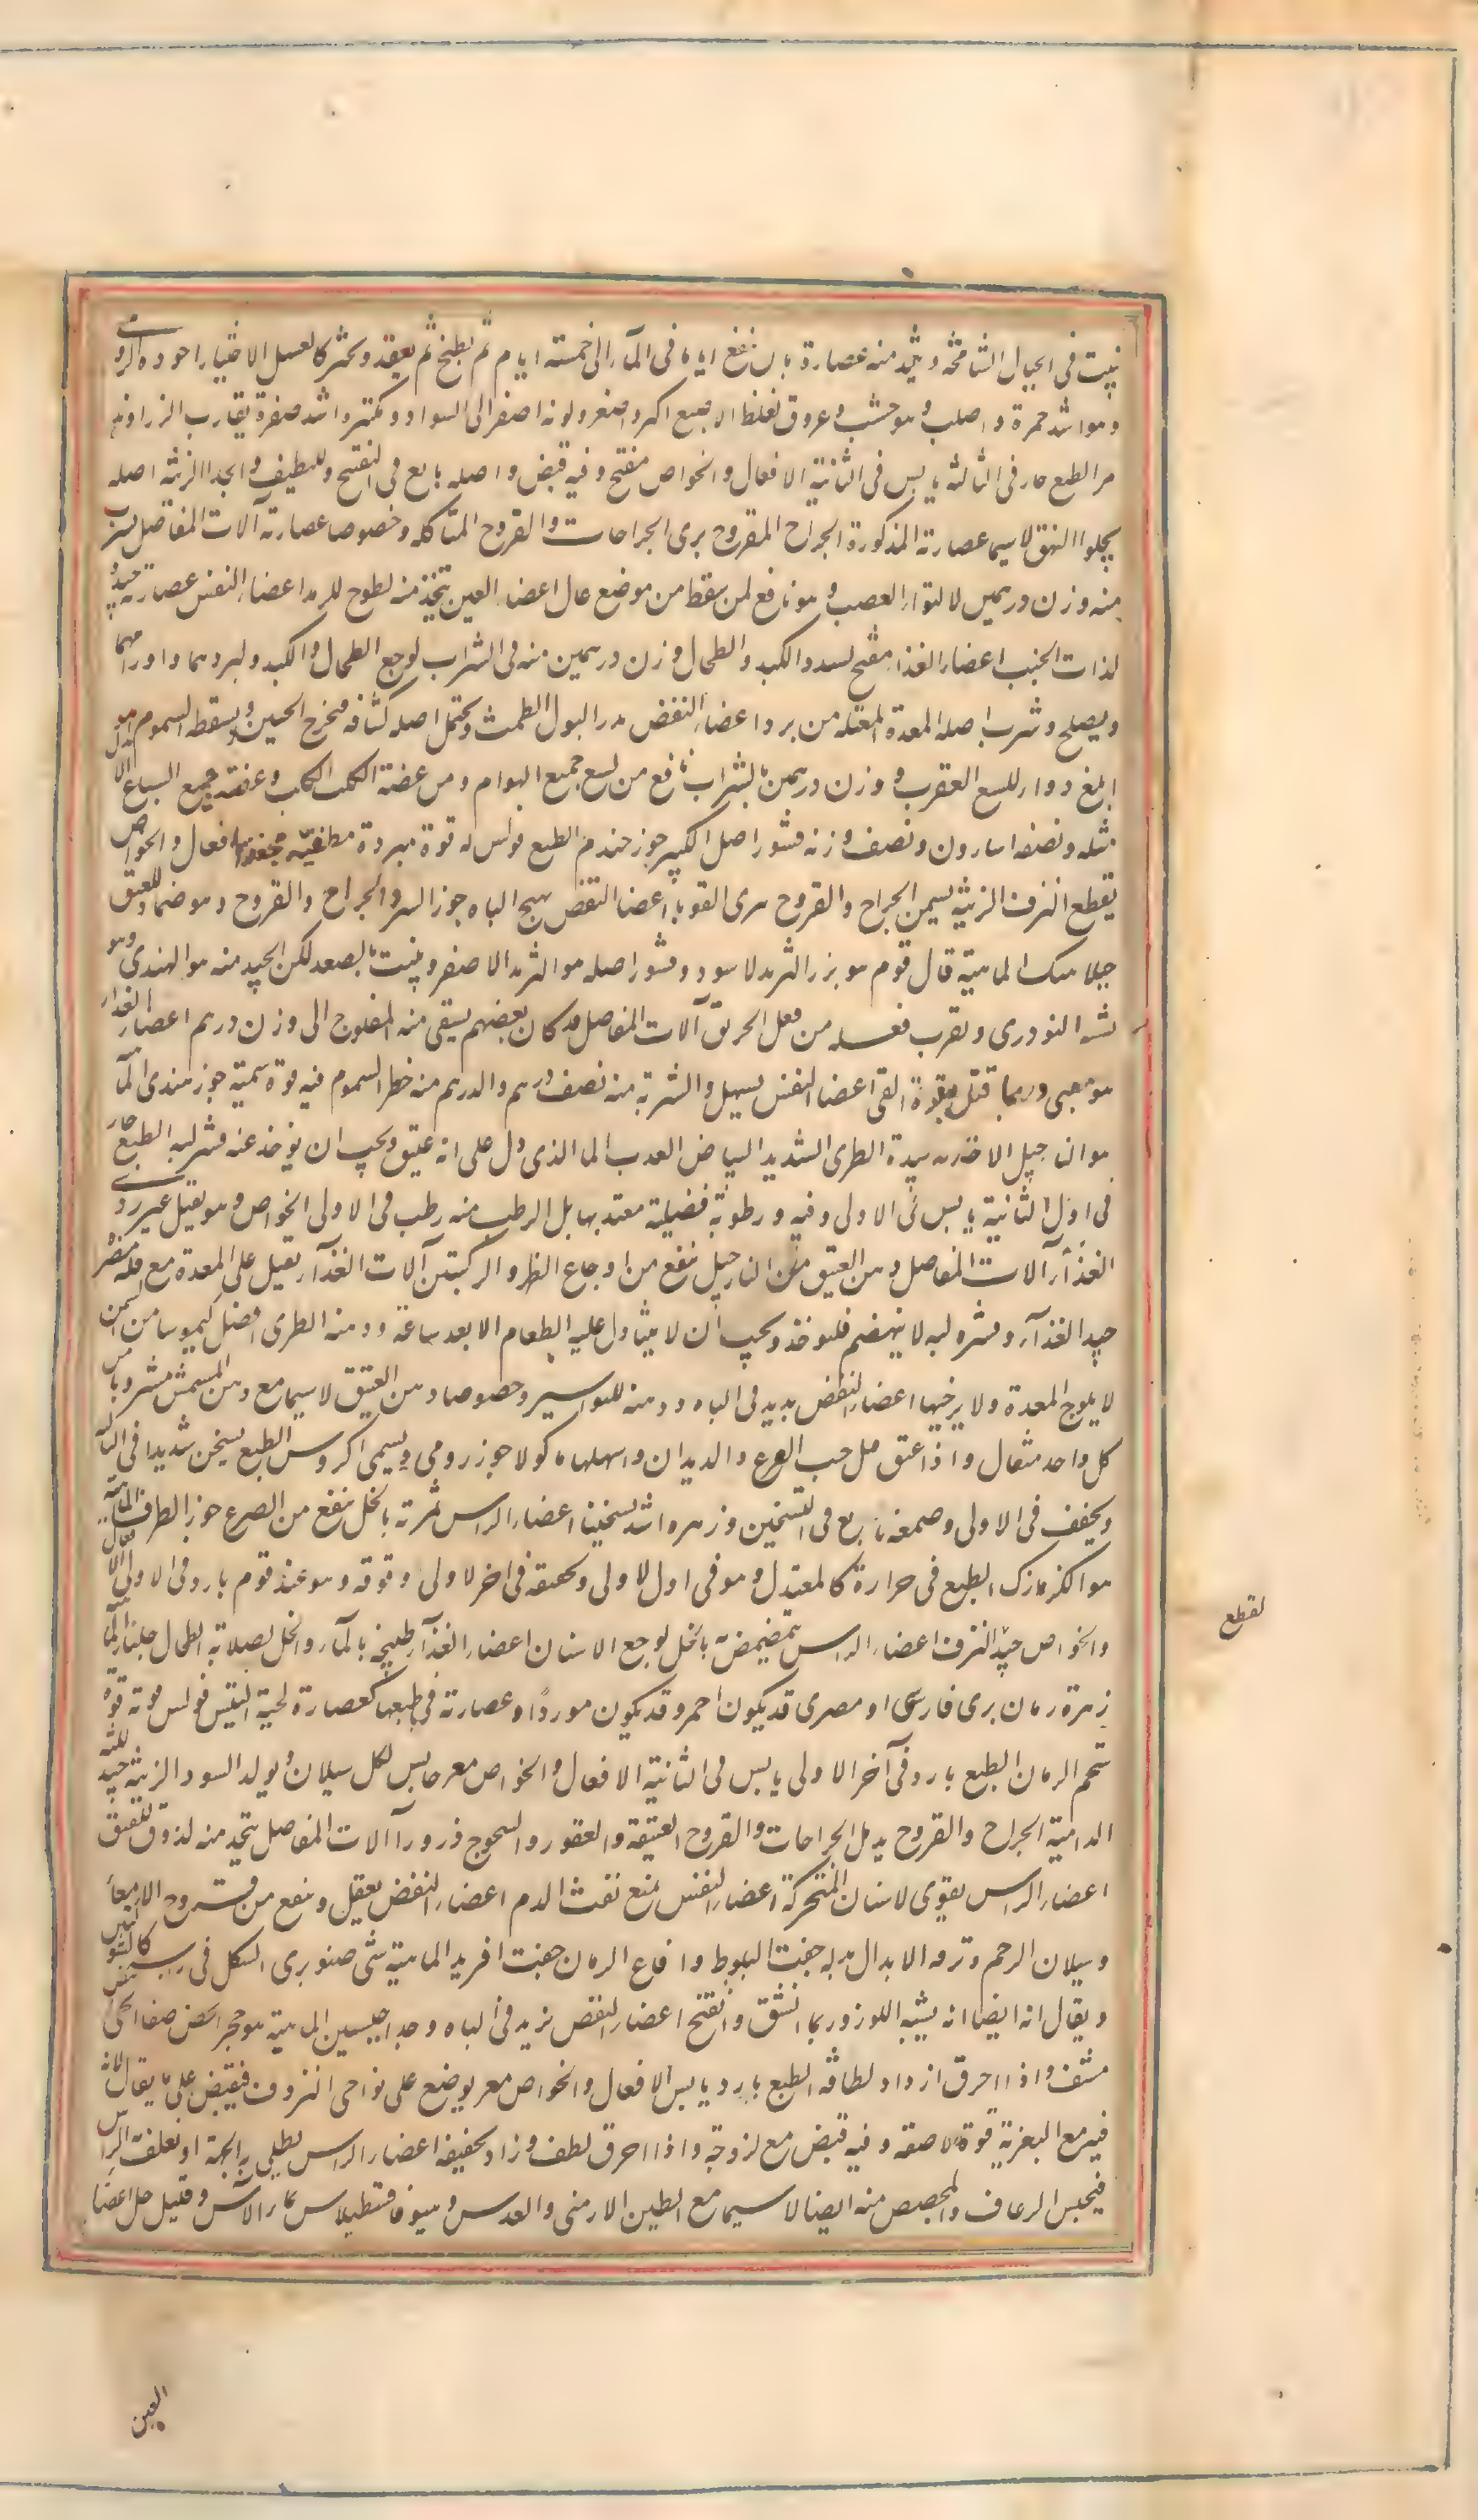 ينبت فى الجبال الشامخة ويتخذ منه عصارة بان ينقع اياما فى المآء الى خمسة ايام ثم يطبخ ثم يعقد ويخثر كالعسل الاختيار اجوده الرومى
وهو اشد حمرة واصلب وهو خشب وعروق لغلظ الاصبع اكبر واصغر ولونه اصفر الى السواد ومكسره اشد صفرة يقارب الزراوند
مر الطبع حار فى الثالثة يابس فى الثانية الافعال والخواص مفتح وفيه قبض واصله بالغ فى التفتيح وتلطيف الزينة اصله
يجلو البهق لا سيما عصارته المذكورة الجراح المقروح يبرى الجراحات والقروح المتأكلة وخصوصا عصارته آلات المفاصل يشرب
منه وزن درهمين لالتواء العصب وهو نافع لمن سقط من موضع عال اعضاء العين يتخذ منه لطوخ للرمد اعضاء النفس عصارته جيد
لذات الجنب اعضاء الغذاء مفتح لسدد الكبد والطحال وزن درهمين منه فى الشراب لوجع الطحال والكبد ولبردهما واورامهما
ويصلح وشرب اصله المعدة المعتلة من برد اعضاء النفض مدر البول الطمث ويحتمل اصله كشافه فيخرج الجنين ويسقطه السموم
ابلغ دواء للسع العقرب وزن درهمين بالشراب نافع من لسع جميع الهوام ومن عضة الكلب الكلب وعضة جميع السباع
مثله ونصفه اسارون ونصف وزنه قشور اصل الكبر جوز جندم الطبع فولس له قوة مبردة مطفية مجففة الافعال والخواص
يقطع النزف الزينة يسمن الجراح والقروح يبرى القوبا اعضا النفض يهيج الباه جوز السرو الجراح والقروح وهو ضماد للفتق
جبلاهنك الماهية قال قوم هو بزر التربد الاسود وقشور اصله هو التربد الاصفر وينبت بالصغد لكن الجيد منه هو الهندى وهو
يشبه التودرى ويقرب فعله من فعل الخربق آلات المفاصل قد كان بعضهم يسقى منه المفلوج الى وزن درهم اعضاء الغذاء
هو مقيئ وربما قتل بقوة القى اعضا النفض يسهل والشربة منه نصف درهم والدرهم منه خطر السموم فيه قوة سمية جوز هندى
هو النارجيل الاختيار جيده الطرى الشديد البياض العذب الما الذى دل على انه عتيق ويجب ان يوخذ عنه قشر لبه الطبع حار
فى اول الثانية يابس فى الاولى وفيه رطوبة فضيلة معتد بها بل الرطب منه رطب فى الاولى الخواص هو ثقيل غير ردى
الغذآء آلات المفاصل دهن العتيق من النارجيل ينفع من اوجاع الظهر والركبتين آلات الغذآء ثقيل على المعدة مع قلة مضرة
جيد الغذآء وقشره لبه لا ينهضم فليوخذ ويجب ان لا يتناول عليه الطعام الا بعد ساعة ودهنه الطرى افضل كيموسا من السمن
لا يلوج المعدة ولا يرخيها اعضاء النفض يزيد فى الباه ودهنه للبواسير وخصوصا دهن العتيق لا سيما مع دهن المشمش مشروبا من
كل واحد مثقال واذا عتق قتل حب القرع والديدان واسهلها ماكولا جوز رومى ويسمى اكروس الطبع يسخن شديدا فى الثالثة
ويجفف فى الاولى وصمغه بالغ فى التسخين وزهره اشد تسخينا اعضاء الراس ثمرته بالخل ينفع من الصرع جوز الطرفا الماهية
هو الكزمازك الطبع فى حرارة كالمعتدل وهو فى اول الاولى وتجفيفه فى اخر الاولى وفوقه وهو عند قوم بارد فى الاولى الافعال
والخواص جيد النزف اعضاء الراس يتمضمض بالخل لوجع الاسنان اعضاء الغذآء طبيخه بالمآء والخل لصلابة الطحال جلنار الماهية
زهرة رمان برى فارسى او مصرى قد يكون احمر وقد يكون موردا وعصارته فى طبعها كعصارة لحية التيس فولس قوته قوة
شحم الرمان الطبع بارد فى آخر الاولى يابس فى الثانية الافعال والخواص مغر حابس لكل سيلان ويولد السودا الزينة جيد للثة
الدامية الجراح والقروح يدمل الجراحات والقروح العتيقة والعقور والسحوج ذرورا آلات المفاصل يتخذ منه لزوق للفتق
اعضاء الراس يقوى الاسنان المتحركة اعضاء النفس يمنع نفث الدم اعضاء النفض يعقل وينفع من قروح الامعآء
وسيلان الرحم ونزفه الابدال بدله جفت البلوط واقماع الرمان جفت افريد الماهية شئ صنوبرى الشكل فى
ويقال انه ايضا انه يشبه اللوز وربما انشق وانفتح اعضاء النفض يزيد فى الباه وجدا جبسين الماهية هو حجر
مشف واذا احرق ازداد لطافة الطبع بارد يابس الافعال والخواص مغر يوضع على نواحى النزوف فيقبض على ما يقال لانه
فيه مع التغرية قوة لاصقة وفيه قبض مع لزوجة واذا احرق لطف وزاد تجفيفه اعضاء الراس يطلى به الجبهة او يغلف الراس
فيحبس الرعاف والمجصص منه ايضا لا سيما مع الطين الارمنى والعدس وهيوفاقسطيداس بماء الآس وقليل خل اعضاء
لقطع
العين